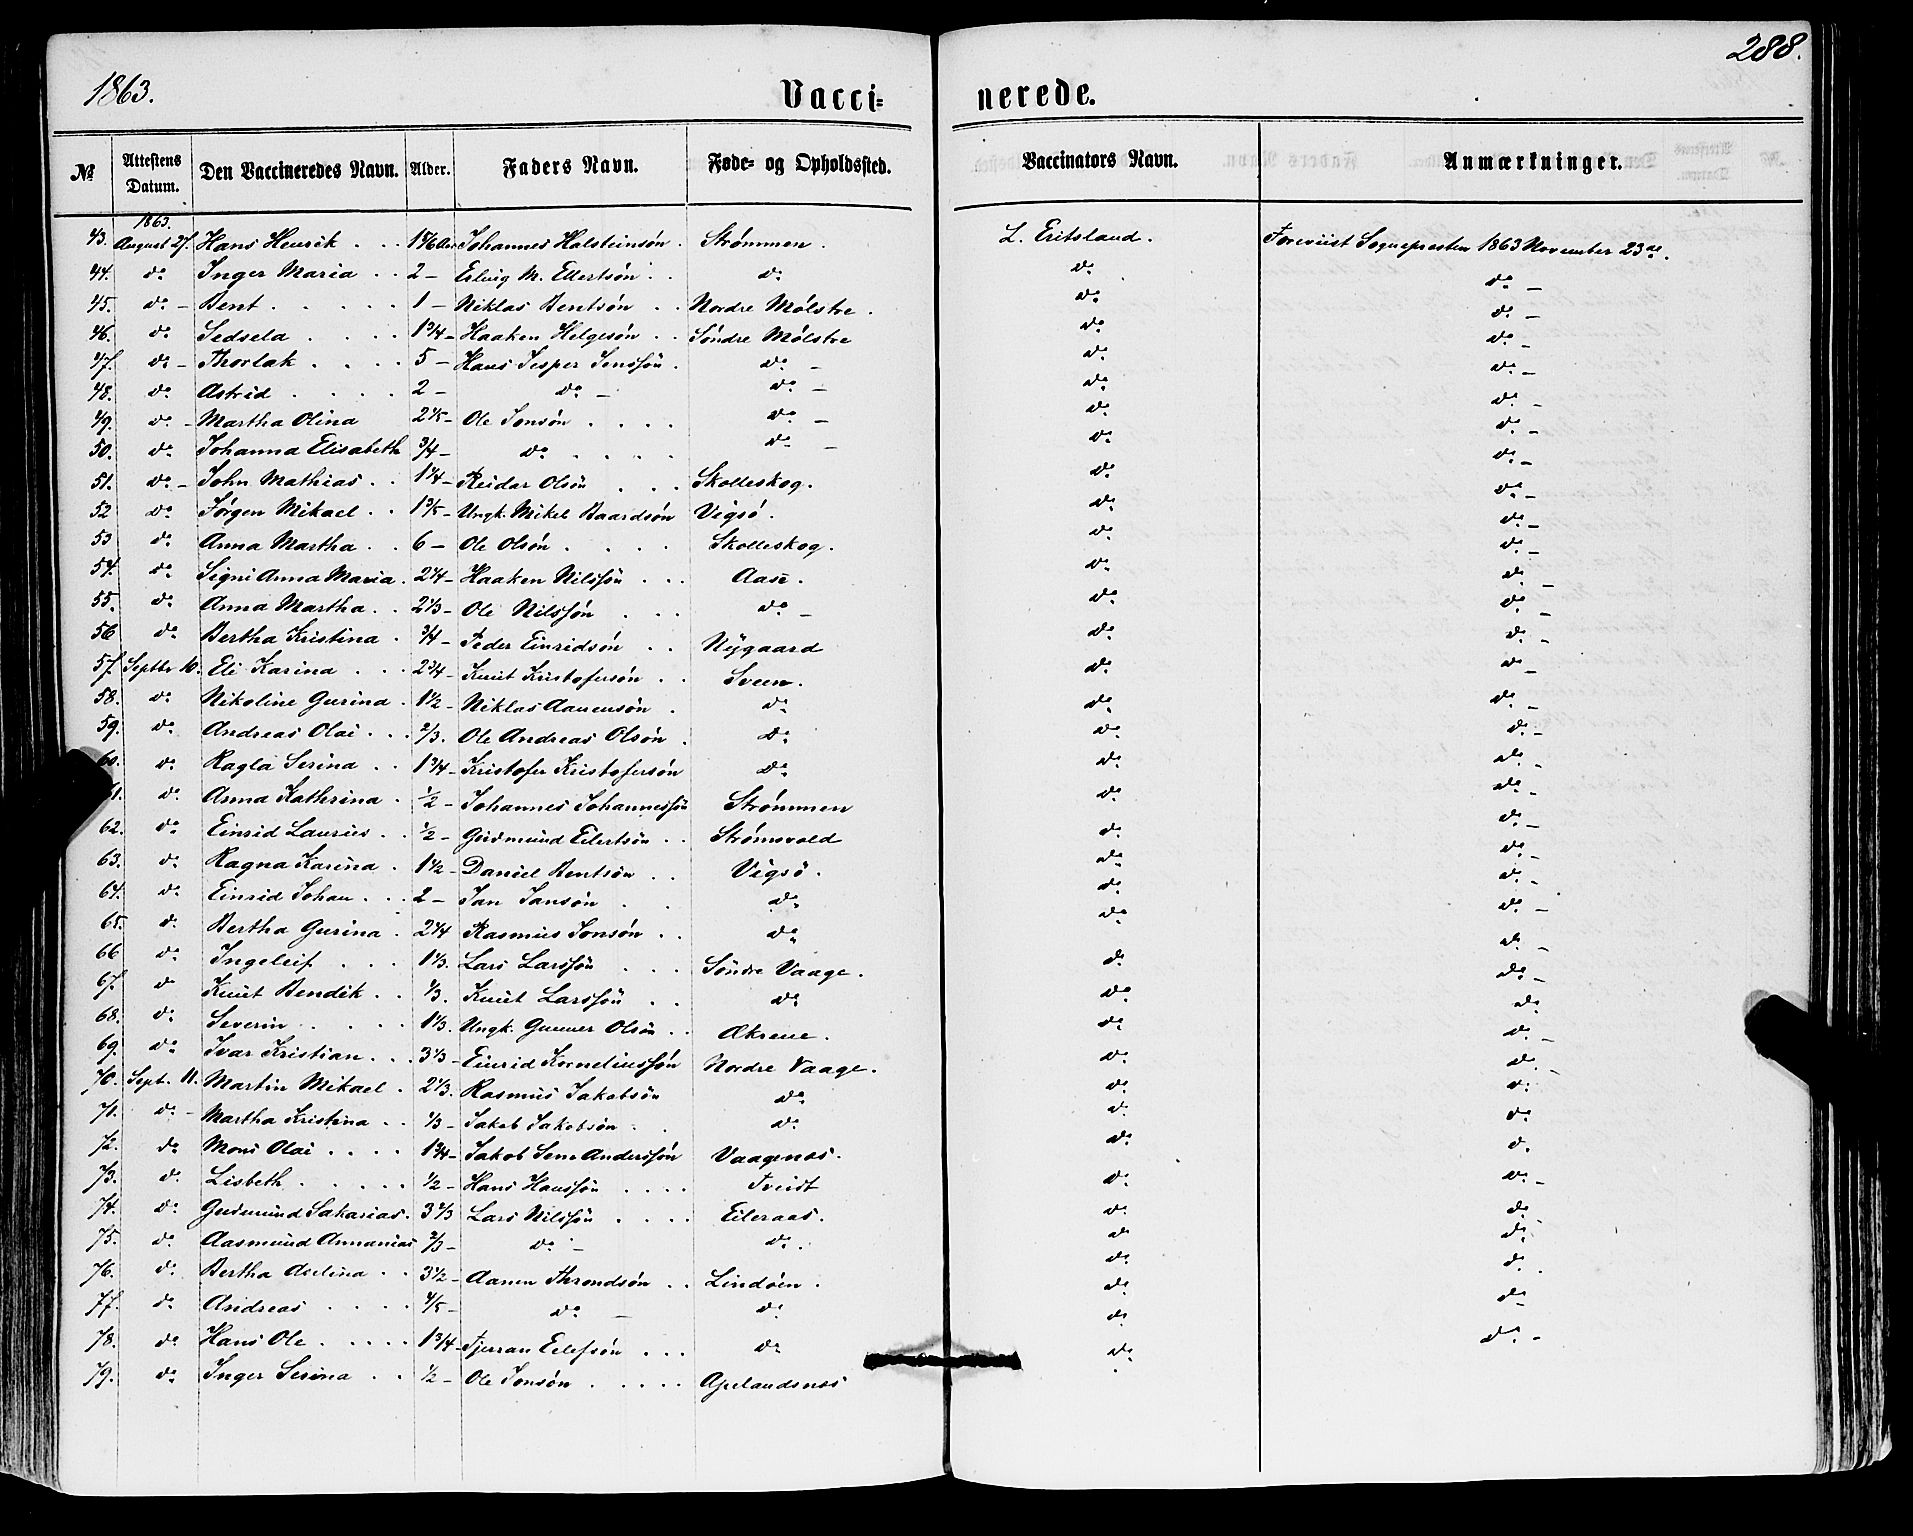 288.
1863.
Vacci= nerede.
№ Attestens Datum. Den Vaccineredes Navn. Alder. Faders Navn. Føde= og Opholdssted. Vaccinators Navn. Anmærkninger.
1863.
43. August 27. Hans Henrik . . . Johannes Halsteinsøn . Strømmen . L. Eritsland . Foreviist Sognepresten 1863 November 23de.
44. do Inger Maria . . 2 – M. Ellertsøn . . do do do –
45. do – Bent . . . . . 1 – Niklas Bentsøn . . Nordre Mølstre . do do –
46. do Sedsela . . . . 1 3/4 – Haaken Helgesøn . . Søndre Mølstre do do –
47. do – Thorlak . . . . 5 – Hans Jesper Jenssøn . do – do do –
48. do Astrid . . . . 2 – do – do – do do –
49. do – Martha Olina 2 1/5 – Ole Jonsøn . . . . do – do do –
50. do Johanna Elisabeth 3/4 – do . . . . do – do do –
51. do – John Mathias . . 1 1/4 – Reidar Olsøn . . . Skolleskog . do do –
52 do Jørgen Mikael . . 1 3/5 – Ungk. Mikel Baardsøn Vigsø . do do –
53 do Anna Martha . . 6 – Ole Olsøn . . . . Skolleskog . do do –
54. do Signi Anna Maria . 2 1/4 – Haaken Nilssøn . . . Aase . do do –
55. do Anna Martha . . 2 1/3 – Ole Nilssøn . . . do – do do –
56 do Bertha Kristina . 3/4 – Peder Einridsøn . . Nygaard do do –
57. Septbr 10. Eli Karina . . . 2 3/4 – Knut Kristofersøn . . Sveen . do do –
58. do Nikoline Gurina . 1 1/2 – Niklas Aanensøn . do do do –
59. do Andreas Olai . . . 2/3. Ole Andreas Olsøn . do do do –
60. do Ragla Serina . . 1 3/4 – Kristofer Kristofersøn do do do –
61. do Anna Kathrina . 1/2 – Johannes Johannessøn Strømmen do do –
62. do Einrid Laurits . . 1/2 – Gudmund Eilertsøn . . Strømsvold do do –
63. do Ragna Karina . 1 1/2 – Daniel Bentsøn . . Vigsø . do do –
64. do Einrid Johan . . . 2 – Jan Jansøn . . do do do –
65. do Bertha Gurina . 2 1/4 Rasmus Jonsøn . . do do do –
66 do Ingeleif . . . 1 1/3. Lars Larssøn . . . Søndre Vaage . do do –
67. do Knut Bendik . . 1/3. Knut Larssøn . . do do do –
68. do Severin . . . . 1 1/3. Ungk. Gunner Olsøn . . Økrene . do do
69. do Ivar Kristian . . . 3 1/3 – Einrid Korneliussøn Nordre Vaage . do do –
70. Sept. 11. Martin Mikael . 2 1/3. Rasmus Jakobsøn do do do –
71. do – Martha Kristina . . 1/3 – Jakob Jakobsøn . . do do do
72. do Mons Olai . . . . 1 3/4 – Jakob Sem Anderssøn Vaagenes . do do
73. do Lisbeth . . . . . 1/2 – Hans Hanssøn . . . . Tveidt do do –
74. do Gudmund Sakarias . 3 2/3 Lars Nilssøn . . . . Eileraas . do do
75. do Aasmund Annanias 2/3 – do – do . do do
76. do Bertha Aselina . . 3 1/2 – Aanen Throndsøn . . Lindøen . do do .
77. do Andreas . . . . 4/5 – do – do do do
78. do Hans Ole . . . . . 1 3/4 – Tjerran Eilefsøn . . . do do do –
79. do Inger Serina . . 1/2 – Ole Jonsøn . . . . . Apelandsnes do